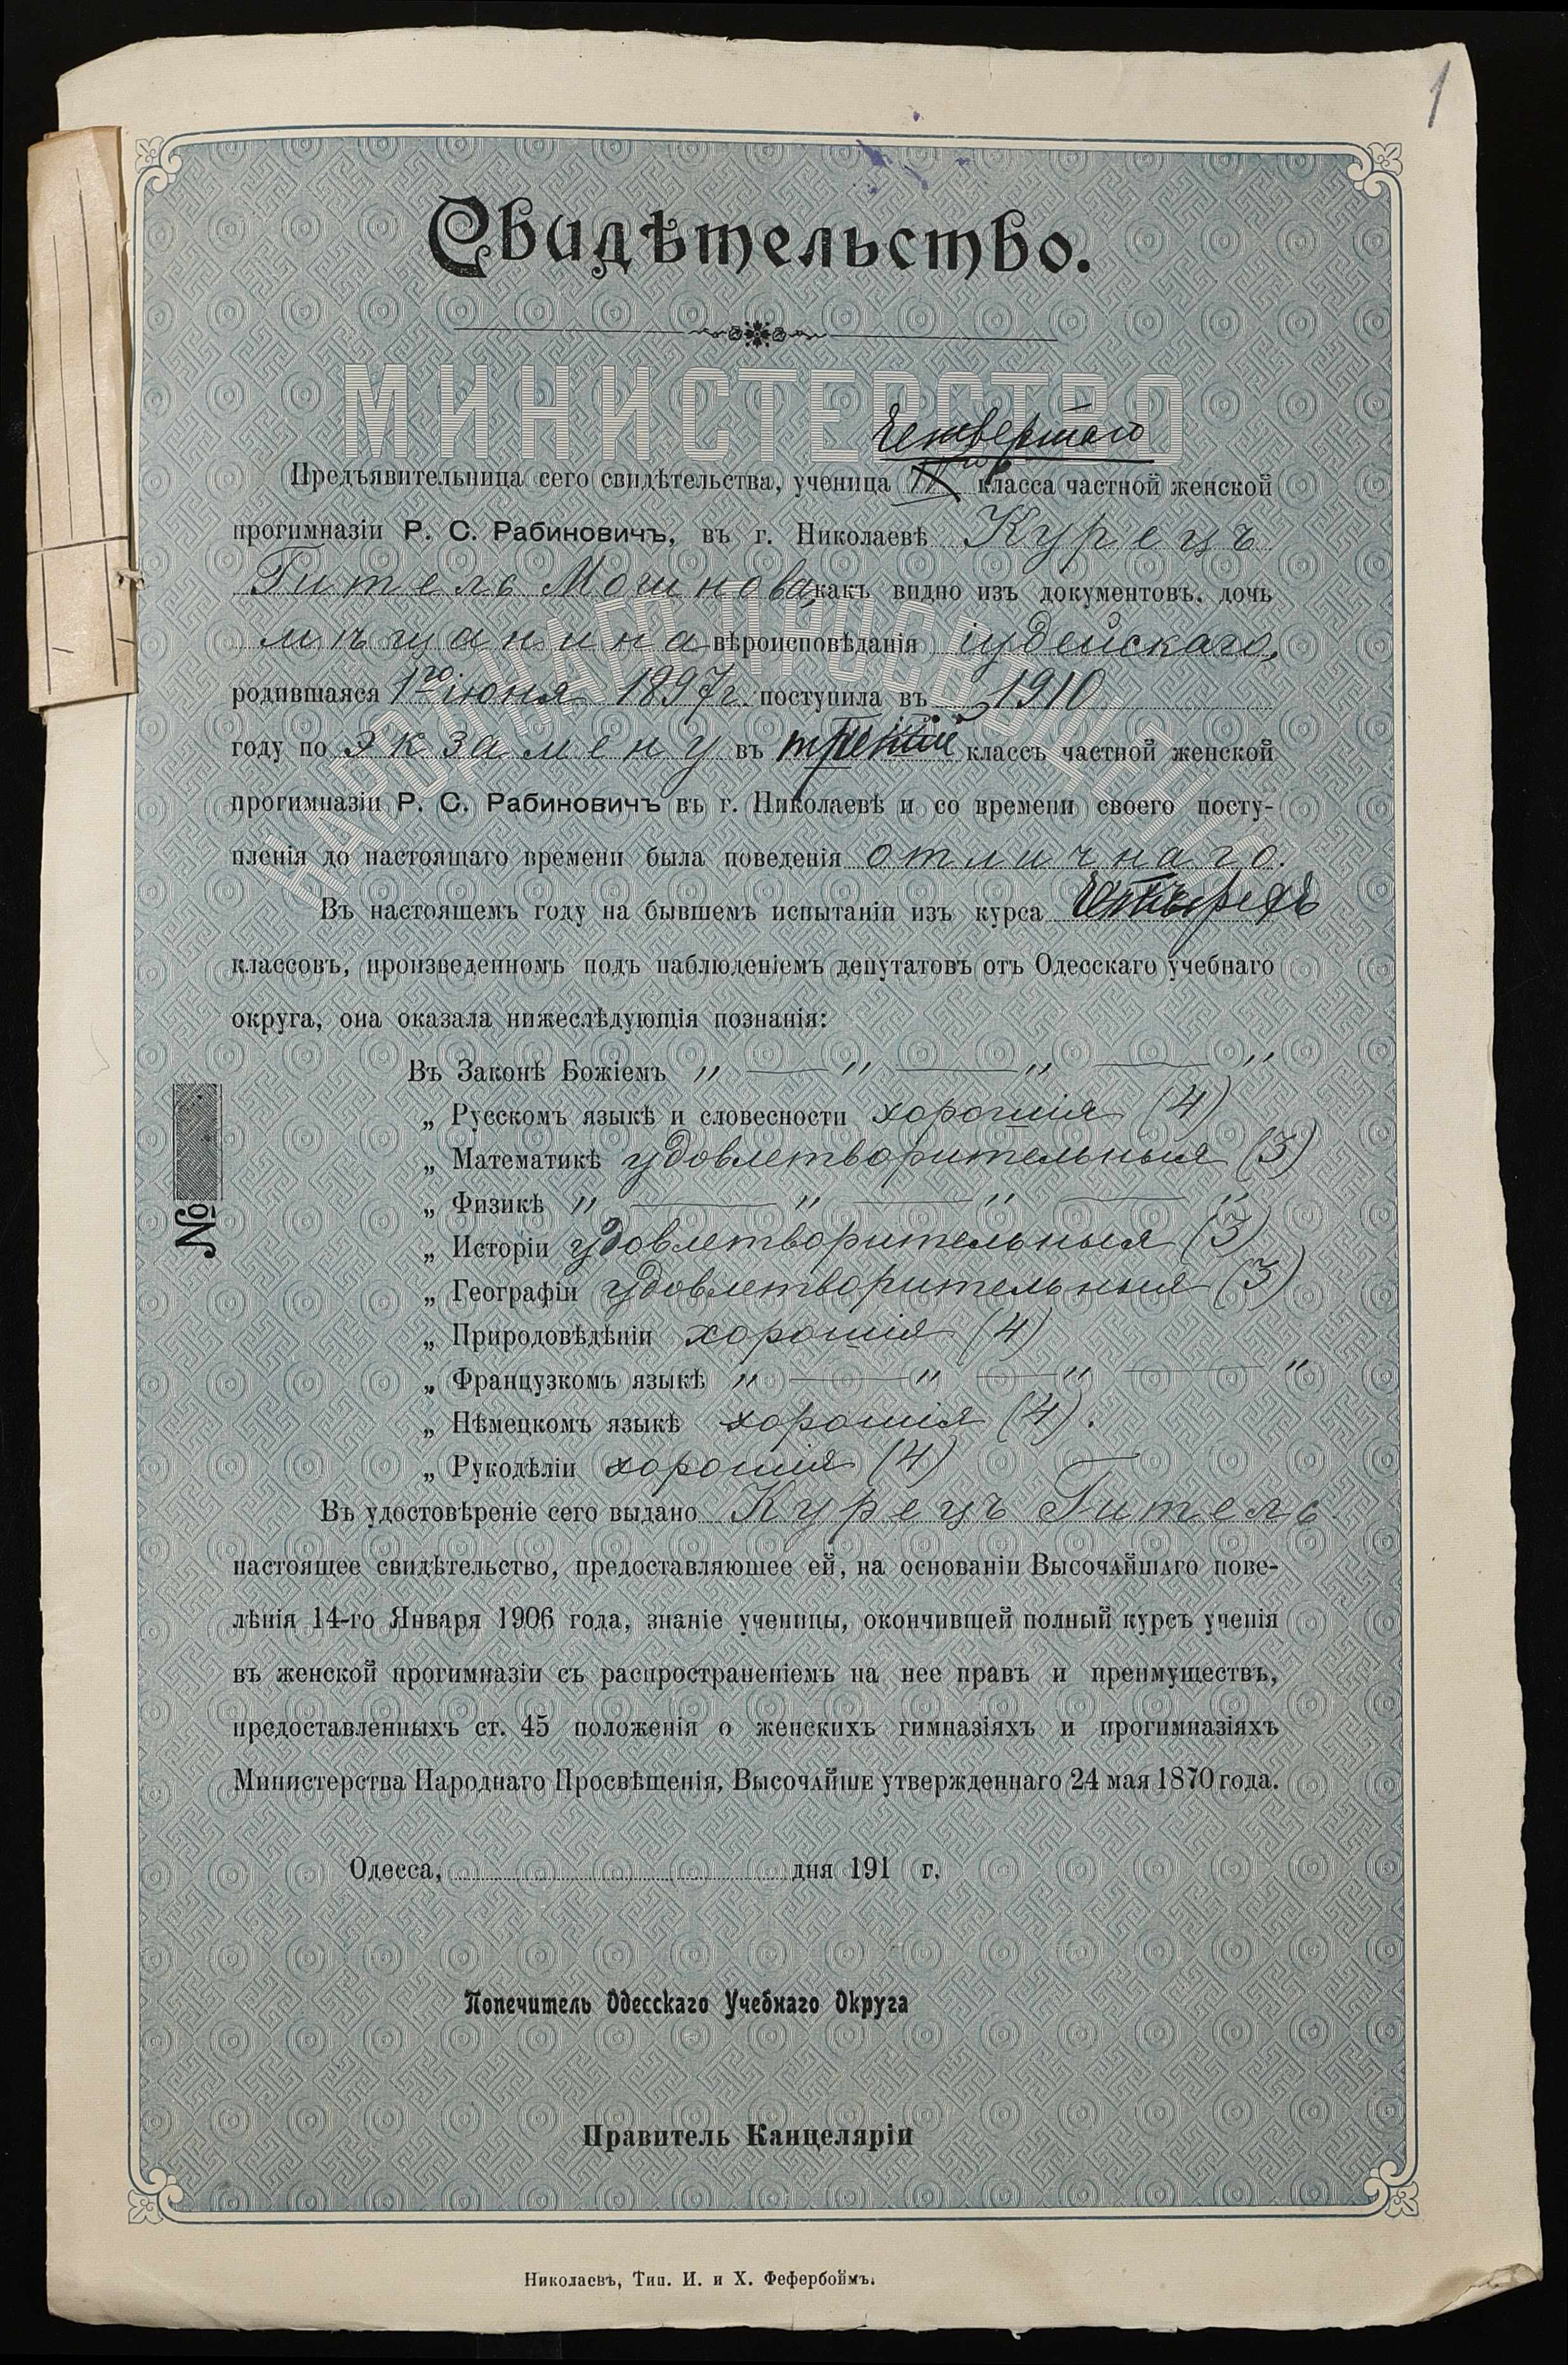 1
Свидѣтельство.
МИНИСТЕРСТВО
НАРОДНАГО ПРОСВѢЩЕНІЯ
четвертаго
Предъявительница сего свидѣтельства, ученица IVго класса частной женской
прогимназіи Р. С. Рабиновичъ, въ г. Николаевѣ Курецъ
Гитель Мошнова, какъ видно изъ документовъ, дочь
мѣщанина вѣроисповѣданія іудейскаго,
родившаяся 1го іюня 1897 г. поступила въ 1910
году по экзамену въ третій классъ частной женской
прогимназіи Р. С. Рабиновичъ въ г. Николаевѣ и со времени своего посту-
пленія до настоящаго времени была поведенія отличнаго.
Въ настоящемъ году на бывшемъ испытаніи изъ курса четырехъ
классовъ, произведенномъ подъ наблюденіемъ депутатовъ отъ Одесскаго учебнаго
округа, она оказала нижеслѣдующія познанія:
Въ Законѣ Божіемъ „ — „ — „ — „
„ Русскомъ языкѣ и словесности хорошія (4)
„ Математикѣ удовлетворительныя (3)
„ Физикѣ „ — „ — „ — „
„ Исторіи удовлетворительныя (3)
„ Географіи удовлетворительныя (3)
„ Природовѣдѣніи хорошія (4)
„ Французкомъ языкѣ „ — „ — „ — „
„ Нѣмецкомъ языкѣ хорошія (4).
„ Рукодѣліи хорошія (4)
№
Въ удостовѣреніе сего выдано Курецъ Гитель
настоящее свидѣтельство, предоставляющее ей, на основаніи ВЫСОЧАЙШАГО пове-
лѣнія 14-го Января 1906 года, знаніе ученицы, окончившей полный курсъ ученія
въ женской прогимназіи съ распространеніемъ на нее правъ и преимуществъ,
предоставленныхъ ст. 45 положенія о женскихъ гимназіяхъ и прогимназіяхъ
Министерства Народнаго Просвѣщенія, ВЫСОЧАЙШЕ утвержденнаго 24 мая 1870 года.
Одесса, дня 191 г.
Попечитель Одесскаго Учебнаго Округа
Правитель Канцеляріи
Николаевъ, Тип. И. и Х. Фефербоймъ.